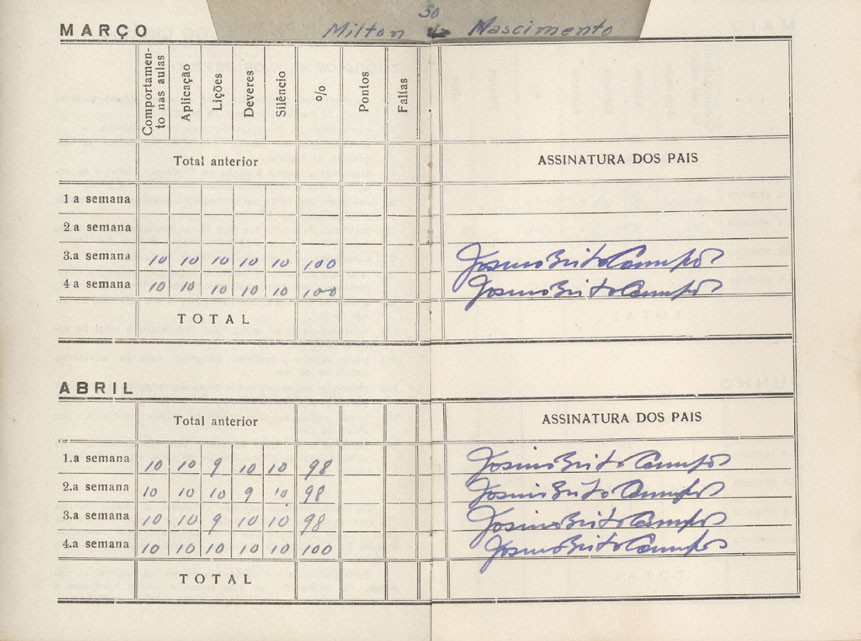 30
MARÇO Milton do Nascimento
Comportamen-
to nas aulas Aplicação Lições Deveres Silêncio % Pontos Faltas
Total anterior ASSINATURA DOS PAIS
1.a semana
2.a semana
3.a semana 10 10 10 10 10 100 Josino Brito Campos
4.a semana 10 10 10 10 10 100 Josino Brito Campos
TOTAL
ABRIL
Total anterior ASSINATURA DOS PAIS
1.a semana 10 10 9 10 10 98 Josino Brito Campos
2.a semana 10 10 10 9 10 98 Josino Brito Campos
3.a semana 10 10 9 10 10 98 Josino Brito Campos
4.a semana 10 10 10 10 10 100 Josino Brito Campos
TOTAL